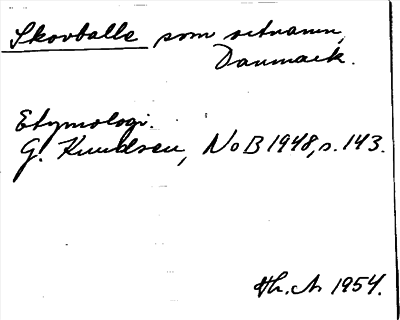 Skovballe som ortnamn,
Danmark.
Etymologi.
G. Knudsen, NoB 1948, s. 143.
1954.